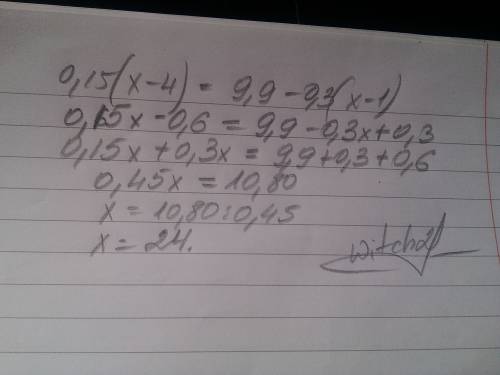 0,15(x-4) = 9,9-0,3(x-1)
0,15x-0,6 = 9,9-0,3x+0,3
0,15x+0,3x = 9,9+0,3+0,6
0,45x = 10,80
x = 10,80:0,45
x = 24.
witch21